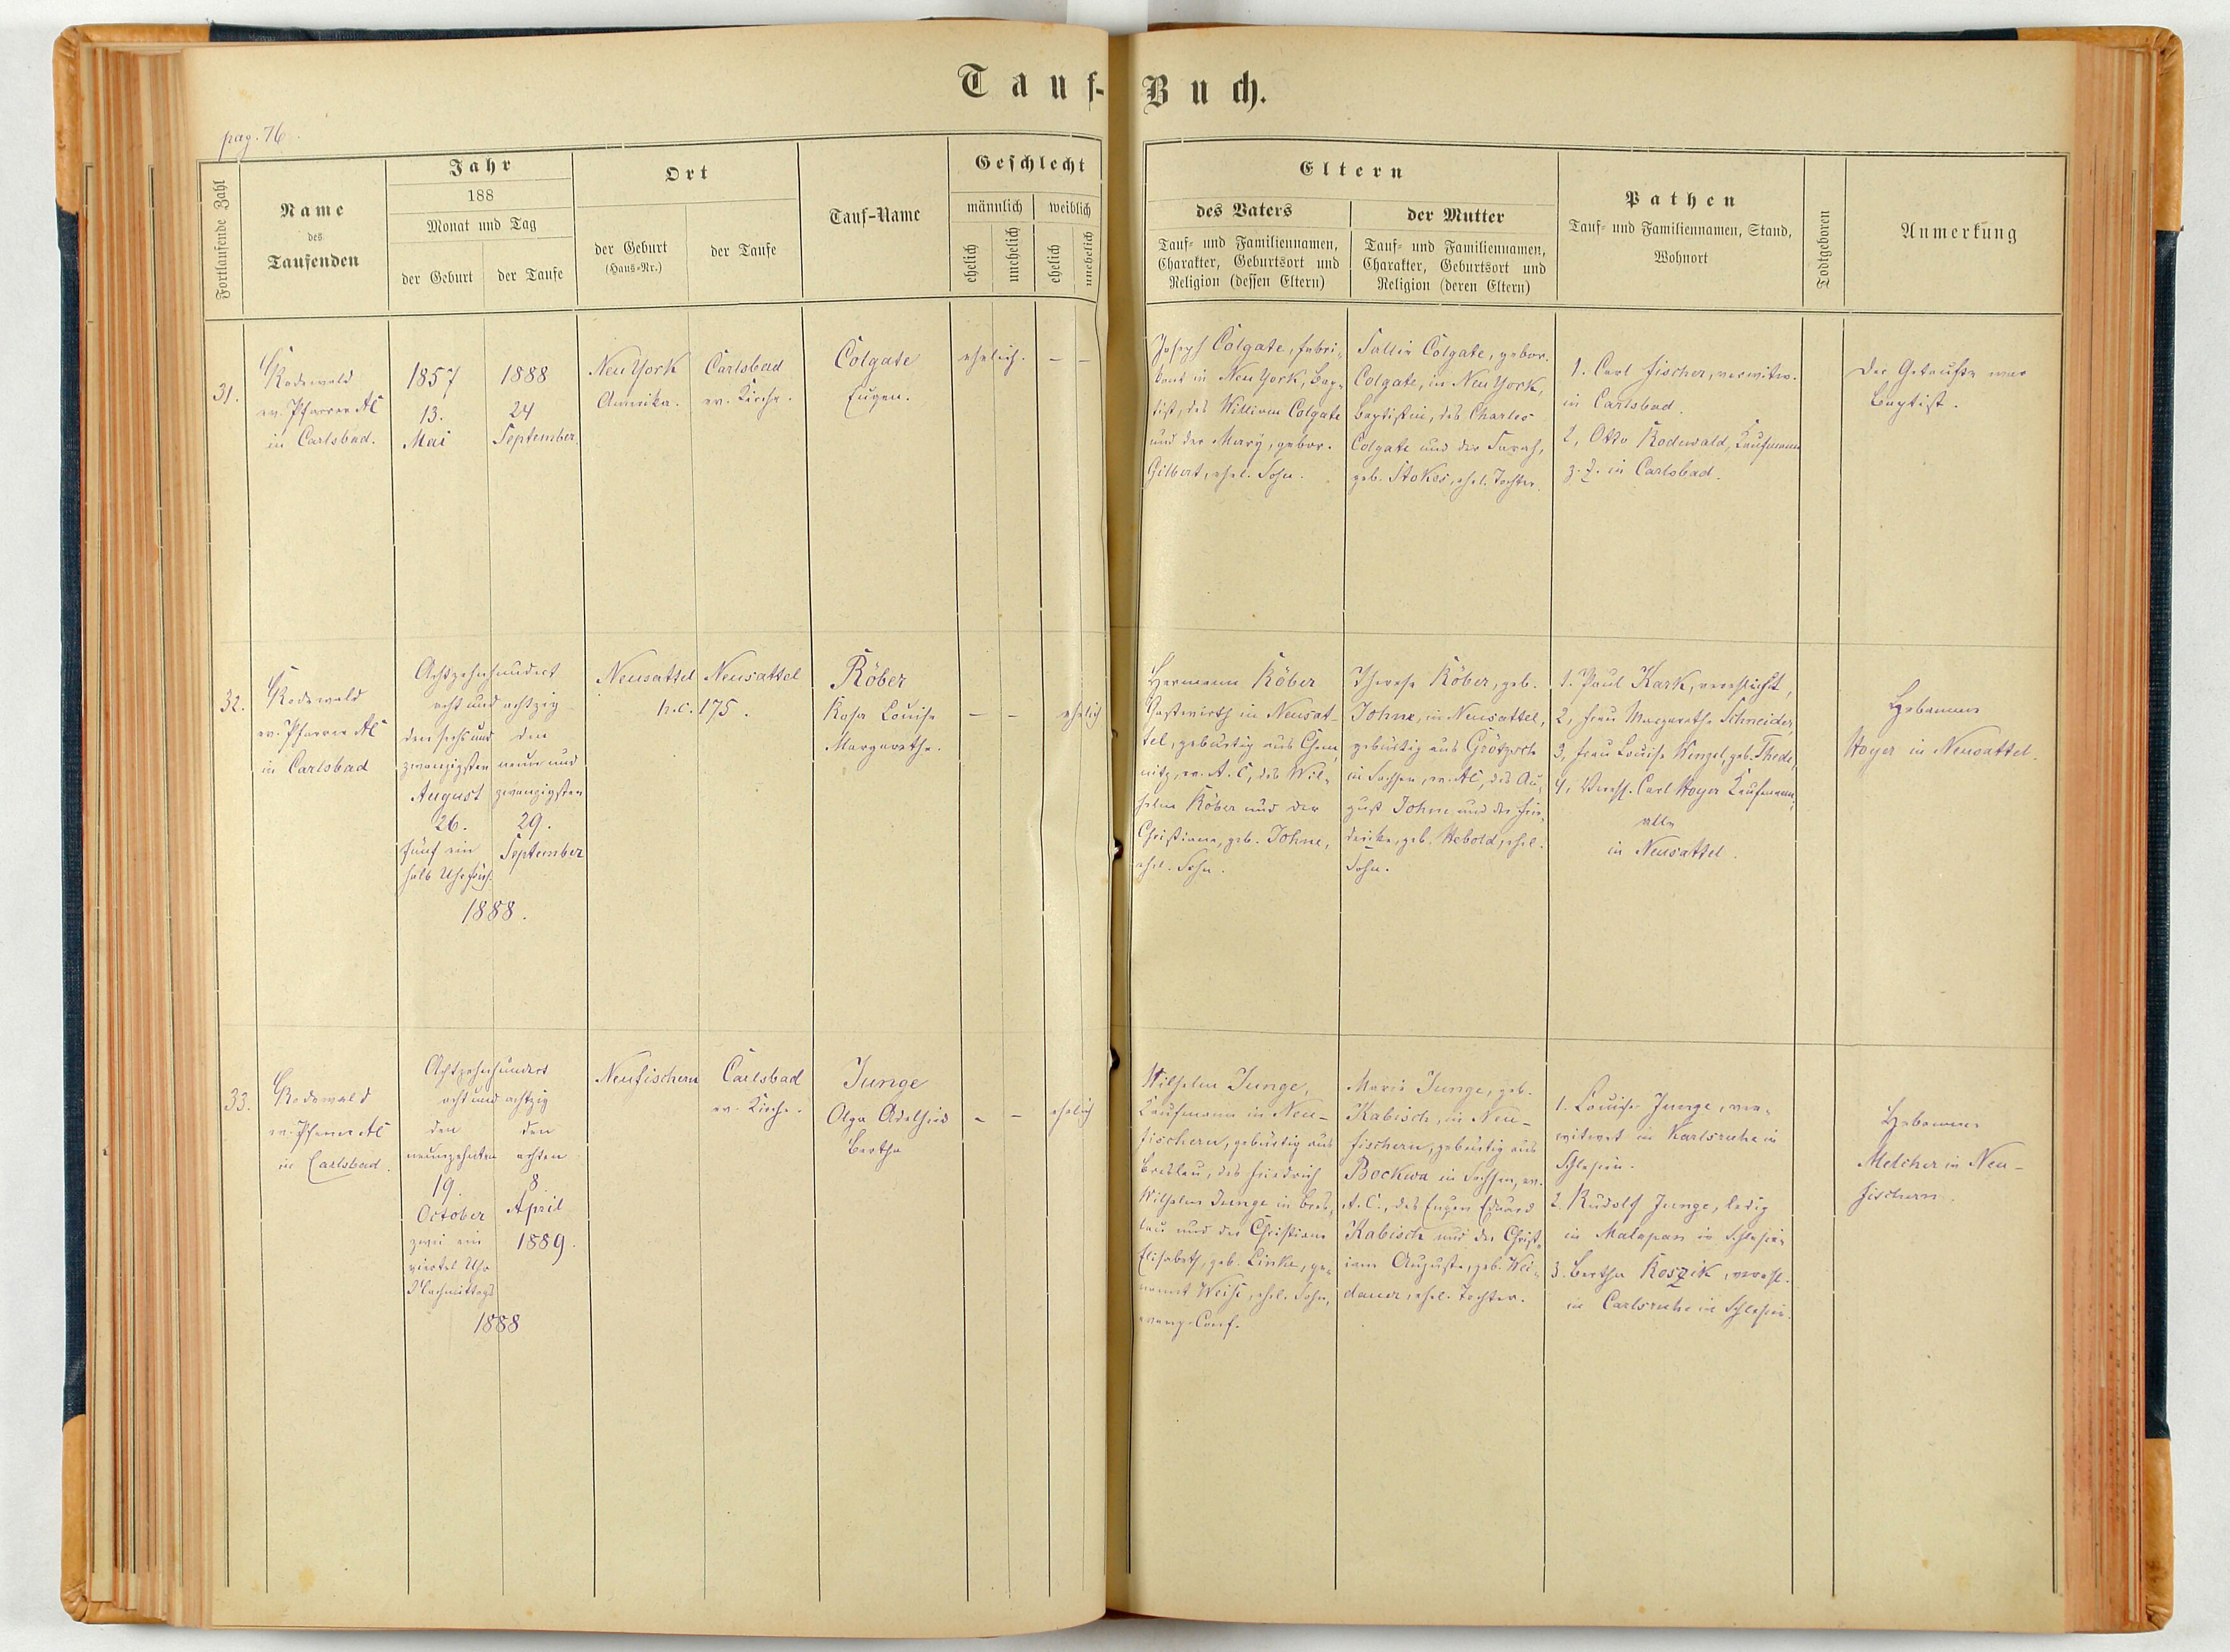 Tauf-Buch.
pag. 76.
Fortlaufende Zahl
Name
des
Taufenden
Jahr
188
Monat und Tag
der Geburt
der Taufe
Ort
der Geburt
(Haus-Nr.)
der Taufe
Tauf-Name
Geschlecht
männlich
weiblich
ehelich
unehelich
ehelich
unehelich
Eltern
des Vaters
Tauf- und Familiennamen,
Charakter, Geburtsort und
Religion (dessen Eltern)
der Mutter
Tauf- und Familiennamen,
Charakter, Geburtsort und
Religion (deren Eltern)
Pathen
Tauf- und Familiennamen, Stand,
Wohnort
Todtgeboren
Anmerkung
31.
Rodewald
ev. Pfarrer AC
in Carlsbad.
1857
13.
Mai
1888
24
September
New York
Amerika.
Carlsbad
ev. Kirche.
Colgate
Eugen.
ehelich.
–
–
Joseph Colgate, Fabri-
kant in New York, Bap-
tist, des William Colgate
und der Mary, gebor.
Gilbert, ehel. Sohn.
Sallie Colgate, gebor.
Colgate, in New York,
Baptistin, des Charles
Colgate und der Sarah,
geb. Stokes, ehel. Tochter.
1. Carl Fischer, verwitw.
in Carlsbad.
2, Otto Rodewald, Kaufmann
z. Z. in Carlsbad.
Der Getaufte war
Baptist.
32.
Rodewald
ev. Pfarrer AC
in Carlsbad
Achtzehnhundert
acht und achtzig
den sechs und
zwanzigsten
August
26.
fünf ein
halb Uhr früh
den
neun und
zwanzigsten
29.
September
1888.
Neusattel
n.c. 175.
Neusattel
Röber
Rosa Louise
Margarethe.
–
–
ehelich
Hermann Röber
Gastwirth in Neusat-
tel, gebürtig aus Chem-
nitz, ev. A. C, des Wil-
helm Röber und der
Christiane, geb. Johne,
ehel. Sohn.
Therese Röber, geb.
Johne, in Neusattel,
gebürtig aus Grötzsch
in Sachsen, ev. AC, des Au-
gust Johne und der Frie-
derike, geb. Hebold, ehel.
Sohn.
1. Paul Kark, verehlicht,
2, Frau Margarethe Schneider,
3, Frau Louise Wenzel, geb. Thede,
4, Verehl. Carl Hoyer Kaufmann,
alle
in Neusattel.
Hebamme
Hoyer in Neusattel.
33.
Rodewald
ev. Pfarrer AC
in Carlsbad.
Achtzehnhundert
acht und achtzig
den
neunzehnten
19.
October
zwei ein
viertel Uhr
Nachmittags
1888
den
achten
8
April
1889.
Neufischern
Carlsbad
ev. Kirche.
Junge
Olga Adelheid
Bertha
–
–
ehelich
Wilhelm Junge,
Kaufmann in Neu-
fischern, gebürtig aus
Breslau, des Friedrich
Wilhelm Junge in Bres-
lau und der Christiane
Elisabeth, geb. Linke, ge-
nannt Weist, ehel. Sohn,
evang. Conf.
Marie Junge, geb.
Kabisch, in Neu-
fischern, gebürtig aus
Bockwa in Sachsen, ev.
A. C., des Eugen Eduard
Kabisch und der Christ-
iane Auguste, geb. Wei-
dauer, ehel. Tochter.
1. Louise Junge, ver-
witwet in Karlsruhe in
Schlesien.
2. Rudolf Junge, ledig
in Malapan in Schlesien
3. Bertha Koszik, verehl.
in Carlsruhe in Schlesien.
Hebamme
Melcher in Neu-
fischern.